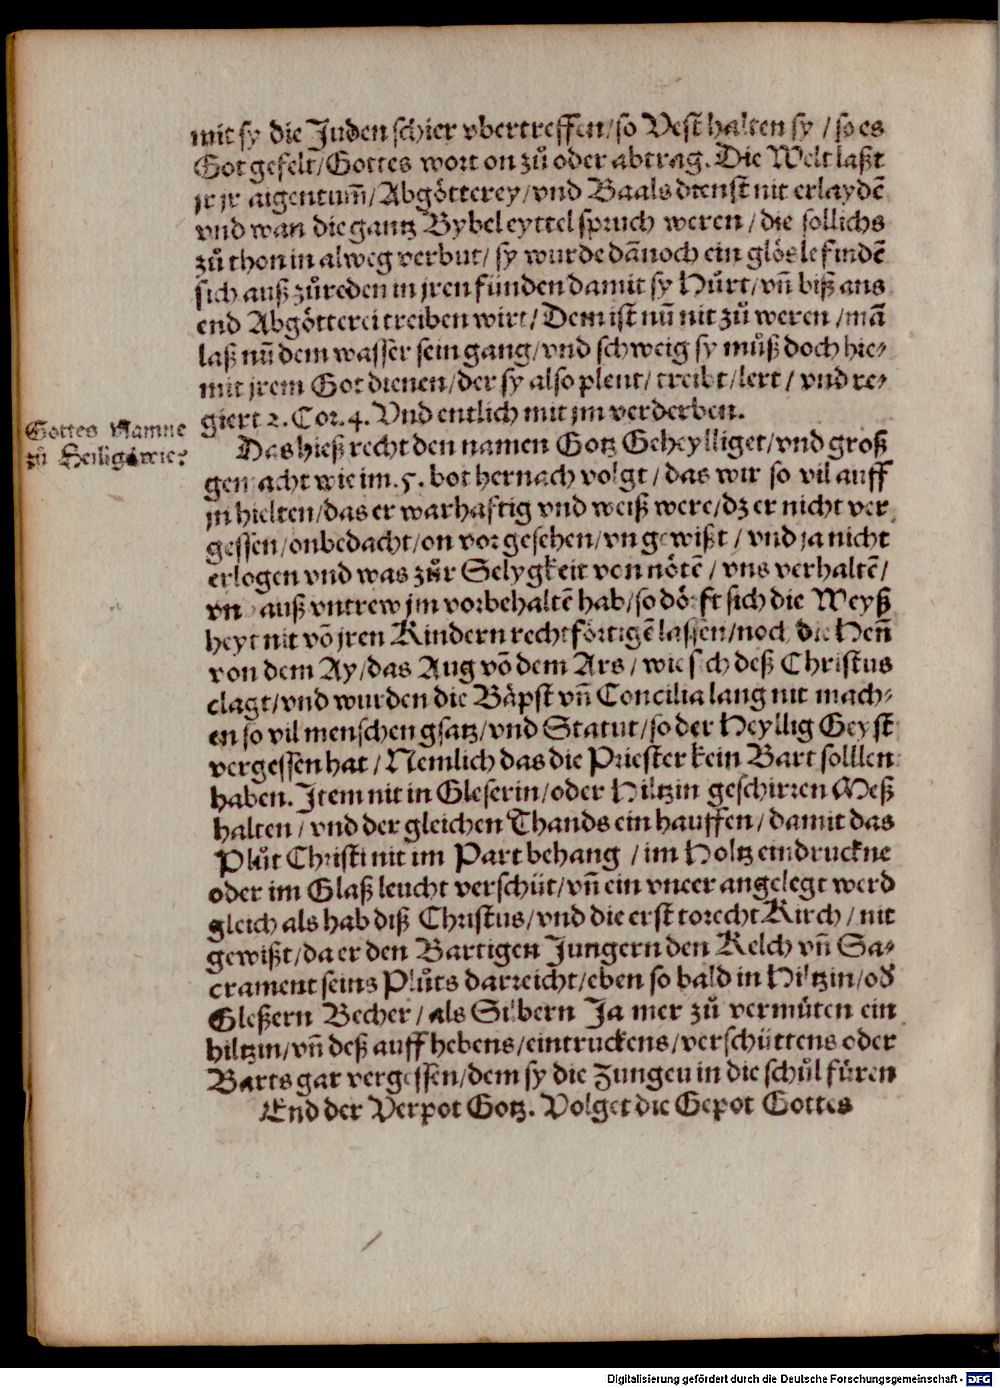 mit sy die Juden schier vbertreffen/so Vest halten sy / so es
Got gefelt/Gottes wort on zů oder abtrag. Die Welt laßt
jr jr aigentum̃/Abgötterey/vnd Baals dienst nit erlaydẽ
vnd wan die gantz Bybel eyttel spruch weren / die sollichs
zů thon in alweg verbut/ sy wurde dãnoch ein glösle findẽ
sich auß zůreden in jren fünden damit sy Hůrt/vñ biß ans
end Abgötterei treiben wirt/ Dem ist nũ nit zů weren /mã
laß nũ dem wasser sein gang/vnd schweig sy můß doch hie-
mit jrem Got dienen/der sy also plent/ treibt/lert / vnd re-
giert 2. Cor. 4. Vnd entlich mit jm verderben.
Gottes Namne
zů Heilige wie?
Das hieß recht den namen Gotz Geheylliget/vnd groß
gemacht wie im. 5. bot hernach volgt / das wir so vil auff
jn hielten/das er warhaftig vnd weiß were/dz er nicht ver
gessen/onbedacht/on vorgesehen/vngewißt / vnd ja nicht
erlogen vnd was zůr Selygkeit von nötẽ / vns verhaltẽ/
vn auß vntrew jm vorbehaltẽ hab/so dörft sich die Weyß
heyt nit võ jren Kindern rechtförtigẽ lassen/noch die Heñ
von dem Ay/das Aug võ dem Ars / wie sich deß Christus
clagt/vnd wurden die Bäpst vñ Concilia lang nit mach-
en so vil menschen gsatz/vnd Statut/so der Heyllig Geyst
vergessen hat / Nemlich das die Priester kein Bart solllen
haben. Item nit in Gleserin/oder Hiltzin geschirren Meß
halten / vnd der gleichen Thands ein hauffen/damit das
Plůt Christi nit im Part behang / im Holtz eindruckne
oder im Glaß leucht verschüt/vñ ein vneer angelegt werd
gleich als hab diß Christus/vnd die erst torecht Kirch / nit
gewißt/da er den Bartigen Jungern den Kelch vñ Sa-
crament seins Plůts darreicht/eben so bald in Hiltzin/oď
Gleßern Becher / als Silbern Ja mer zů vermůten ein
hiltzin/vñ deß auff hebens/eintruckens/verschüttens oder
Barts gar vergessen/dem sy die Zungen in die schůl füren
End der Verpot Gotz. Volget die Gepot Gottes
Digitalisierung gefördert durch die Deutsche Forschungsgemeinschaft - DFG